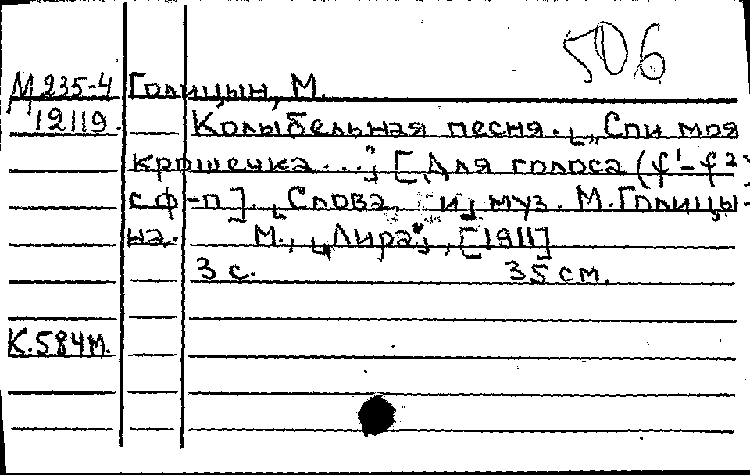 506
М 235-4 Голицын, М.
12119. Колыбельная песня. „Спи моя
крошечка..." [Для голоса (f¹-f²)
с ф-п]. Слова и муз. М. Голицы-
на. М., „Лира", [1911]
3 с. 35 см.
К.584м.